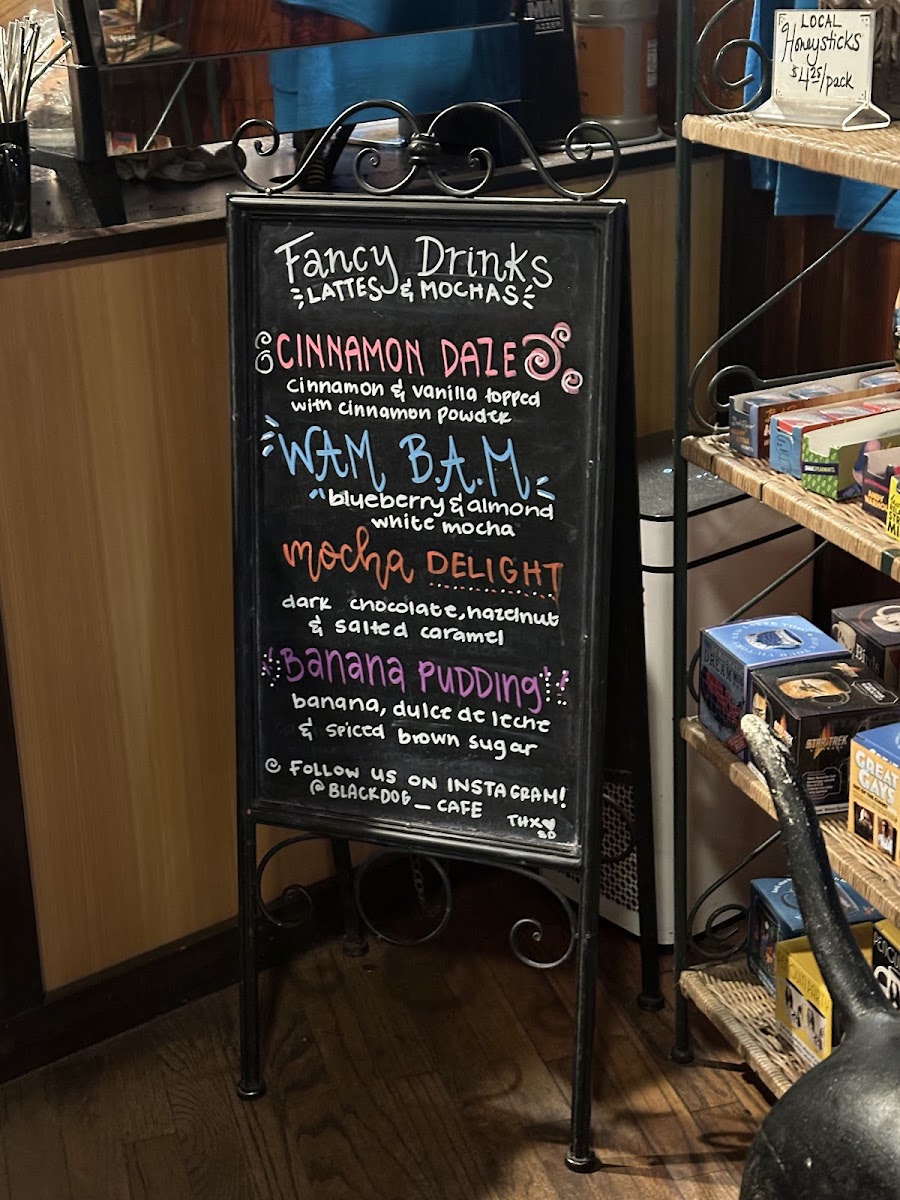 Fancy Drinks
LATTES & MOCHAS
CINNAMON DAZE
cinnamon & vanilla topped
with cinnamon powder
WAM B.A.M.
blueberry & almond
white mocha
mocha DELIGHT
dark chocolate, hazelnut
& salted caramel
Banana PUDDing
banana, dulce de leche
& spiced brown sugar
FOLLOW US ON INSTAGRAM!
@BLACKDOG_CAFE
THX
LOCAL
Honeysticks
$4.25/pack
STAR TREK
GREAT
GAYS